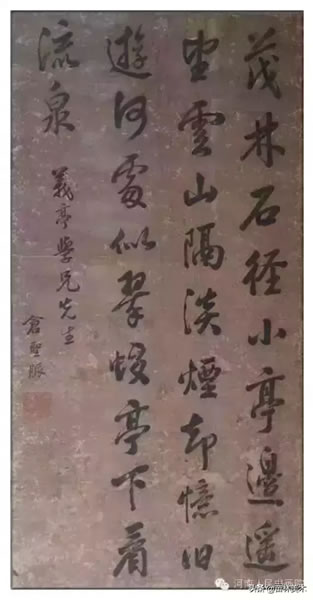 茂林石径小亭邊遥
望雲山隔淡煙却憶旧
遊何處似翠蛟亭下看
流泉
義亭學兄先生
倉聖脈